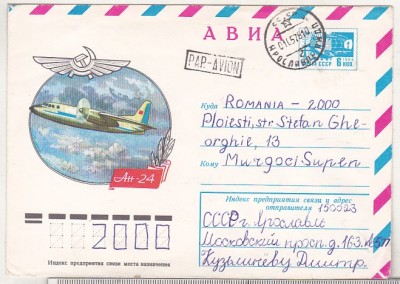 АВИА
PAR AVION
ЯРОСЛАВЛЬ
ПОЧТА
СССР 6 коп
Куда ROMANIA - 2000
Ploiesti, str. Stefan Ghe-
orghie, 13
Кому Murgoci Super
Ан-24
Индекс предприятия связи и адрес
отправителя 150023
СССР г. Ярославль
Московский просп. д. 163
Кузьмичеву Дмитр.
2000
Индекс предприятия связи места назначения